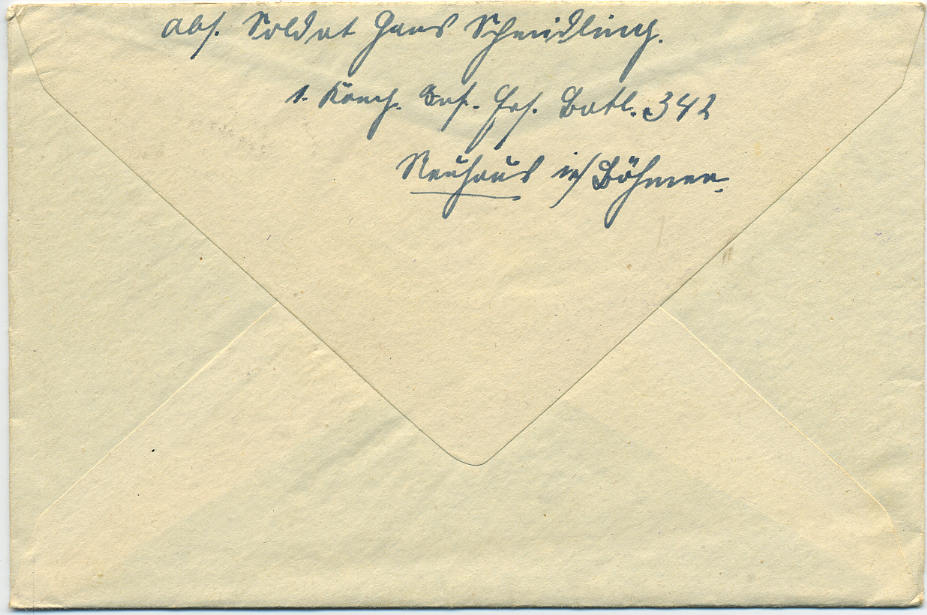 abs. Soldat Hans Schmidling.
1. Komp. Inf. Ers. Batl. 342
Neuhaus i/ Böhmen.